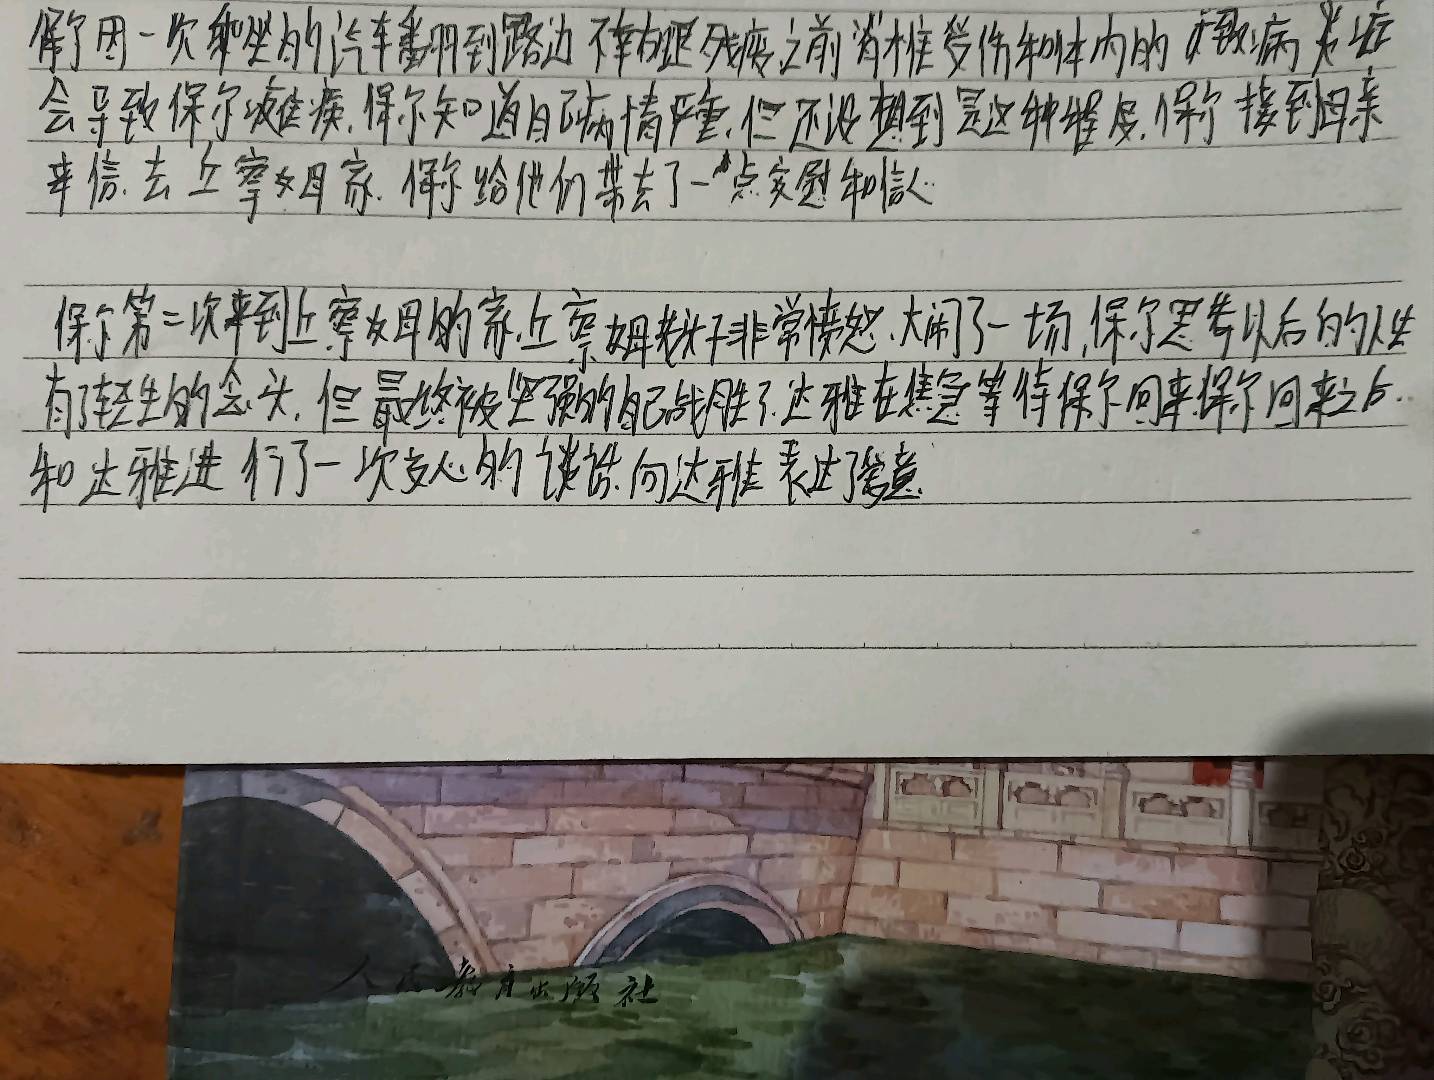 保尔因一次乘坐的汽车翻到路边 不幸右腿残疾之前脊椎受伤和体内的 病
会导致保尔瘫痪.保尔知道自己病情严重.但还没想到是这种程度.保尔接到母亲
来信.去丘察母家.保尔给他们带去了一点安慰和信心.
保尔第二次来到丘察母的家.丘察姆老头子非常愤怒.大闹了一场,保尔思考以后的人生
有了轻生的念头.但最终被坚强的自己战胜了.达雅在焦急等待保尔回来保尔回来之后.
和达雅进行了一次交心的谈话.向达雅表达了爱意.
人民教育出版社